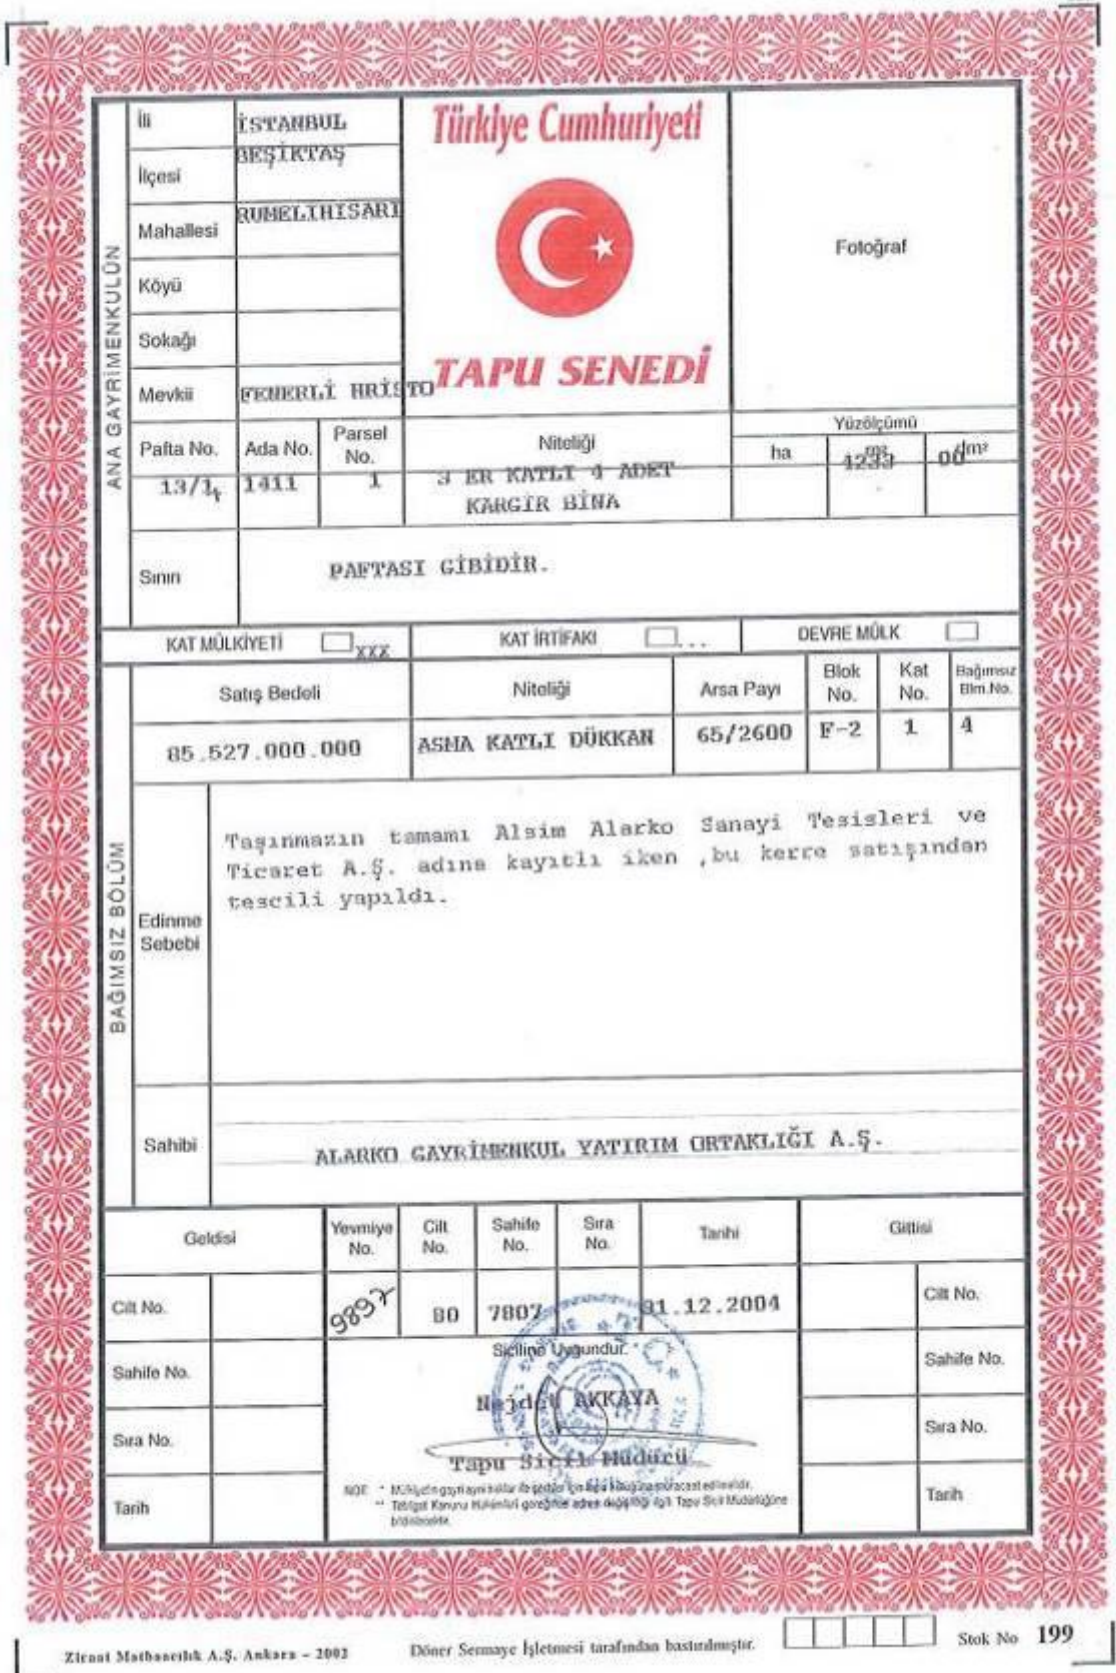 ANA GAYRİMENKULÜN
İli
İSTANBUL
İlçesi
BEŞİKTAŞ
Mahallesi
RUMELIHISARI
Köyü
Sokağı
Mevkii
FENERLİ HRİSTO
Türkiye Cumhuriyeti
TAPU SENEDİ
Fotoğraf
Pafta No.
Ada No.
Parsel No.
Niteliği
Yüzölçümü
ha
m²
dm²
13/1
1411
1
3 ER KATLI 4 ADET
KARGIR BİNA
1233
00
Sınırı
PAFTASI GİBİDİR.
KAT MÜLKİYETİ
xxx
KAT İRTİFAKI
...
DEVRE MÜLK
BAĞIMSIZ BÖLÜM
Satış Bedeli
Niteliği
Arsa Payı
Blok No.
Kat No.
Bağımsız Blm.No.
85.527.000.000
ASMA KATLI DÜKKAN
65/2600
F-2
1
4
Edinme Sebebi
Taşınmazın tamamı Alsim Alarko Sanayi Tesisleri ve
Ticaret A.Ş. adına kayıtlı iken ,bu kerre satışından
tescili yapıldı.
Sahibi
ALARKO GAYRİMENKUL YATIRIM ORTAKLIĞI A.Ş.
Geldisi
Yevmiye No.
Cilt No.
Sahife No.
Sıra No.
Tarihi
Gittisi
Cilt No.
9892
80
7807
31.12.2004
Cilt No.
Sahife No.
Siciline Uygundur.
Sahife No.
Nejdet AKKAYA
Sıra No.
Sıra No.
Tapu Sicil Müdürü
Tarih
NOT: * Mülkiyetin gayri ayni haklar ile şerhler için tapu kütüğüne müracaat edilmelidir.
** Tebligat Kanunu Hükümleri gereğince adres değişikliği ilgili Tapu Sicil Müdürlüğüne
bildirilecektir.
Tarih
Ziraat Matbaacılık A.Ş. Ankara – 2002
Döner Sermaye İşletmesi tarafından bastırılmıştır.
Stok No 199